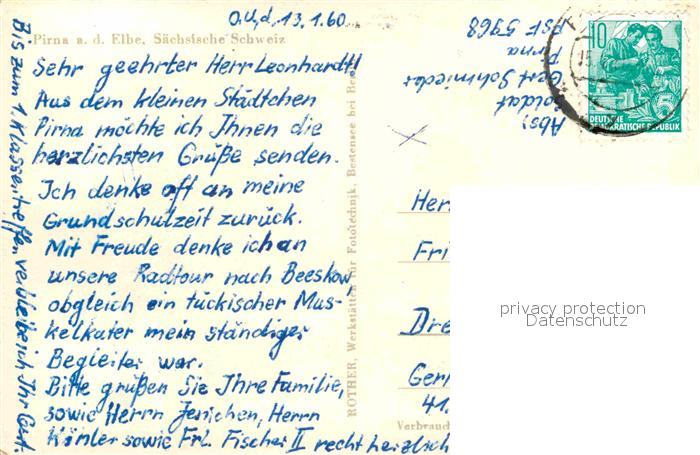 O.U,d. 13.1.60
Pirna a. d. Elbe, Sächsische Schweiz
Sehr geehrter Herr Leonhardt!
Aus dem kleinen Städtchen
Pirna möchte ich Ihnen die
herzlichsten Grüße senden.
Ich denke oft an meine
Grundschulzeit zurück.
Mit Freude denke ich an
unsere Radtour nach Beeskow
obgleich ein tückischer Mus-
kelkater mein ständiger
Begleiter war.
Bitte grüßen Sie Ihre Familie,
sowie Herrn Jenichen, Herrn
Köhler sowie Frl. Fischer II recht herzlich
Bis zum 1. Klassentreffen verbleibe ich Ihr Gert.
ROTHER, Werkstätten für Fototechnik, Bestensee bei Be
Abs;
Soldat
Gert Schmieder
Pirna
PSF 5968
10
5
DEUTSCHE
DEMOKRATISCHE REPUBLIK
Her
Fri
Dre
Ger
41.
Verbrauch
privacy protection
Datenschutz